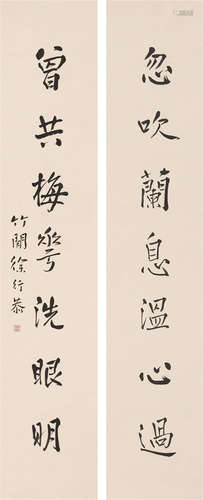 忽吹蘭息溫心過
曾共梅花洗眼明
竹間徐行恭